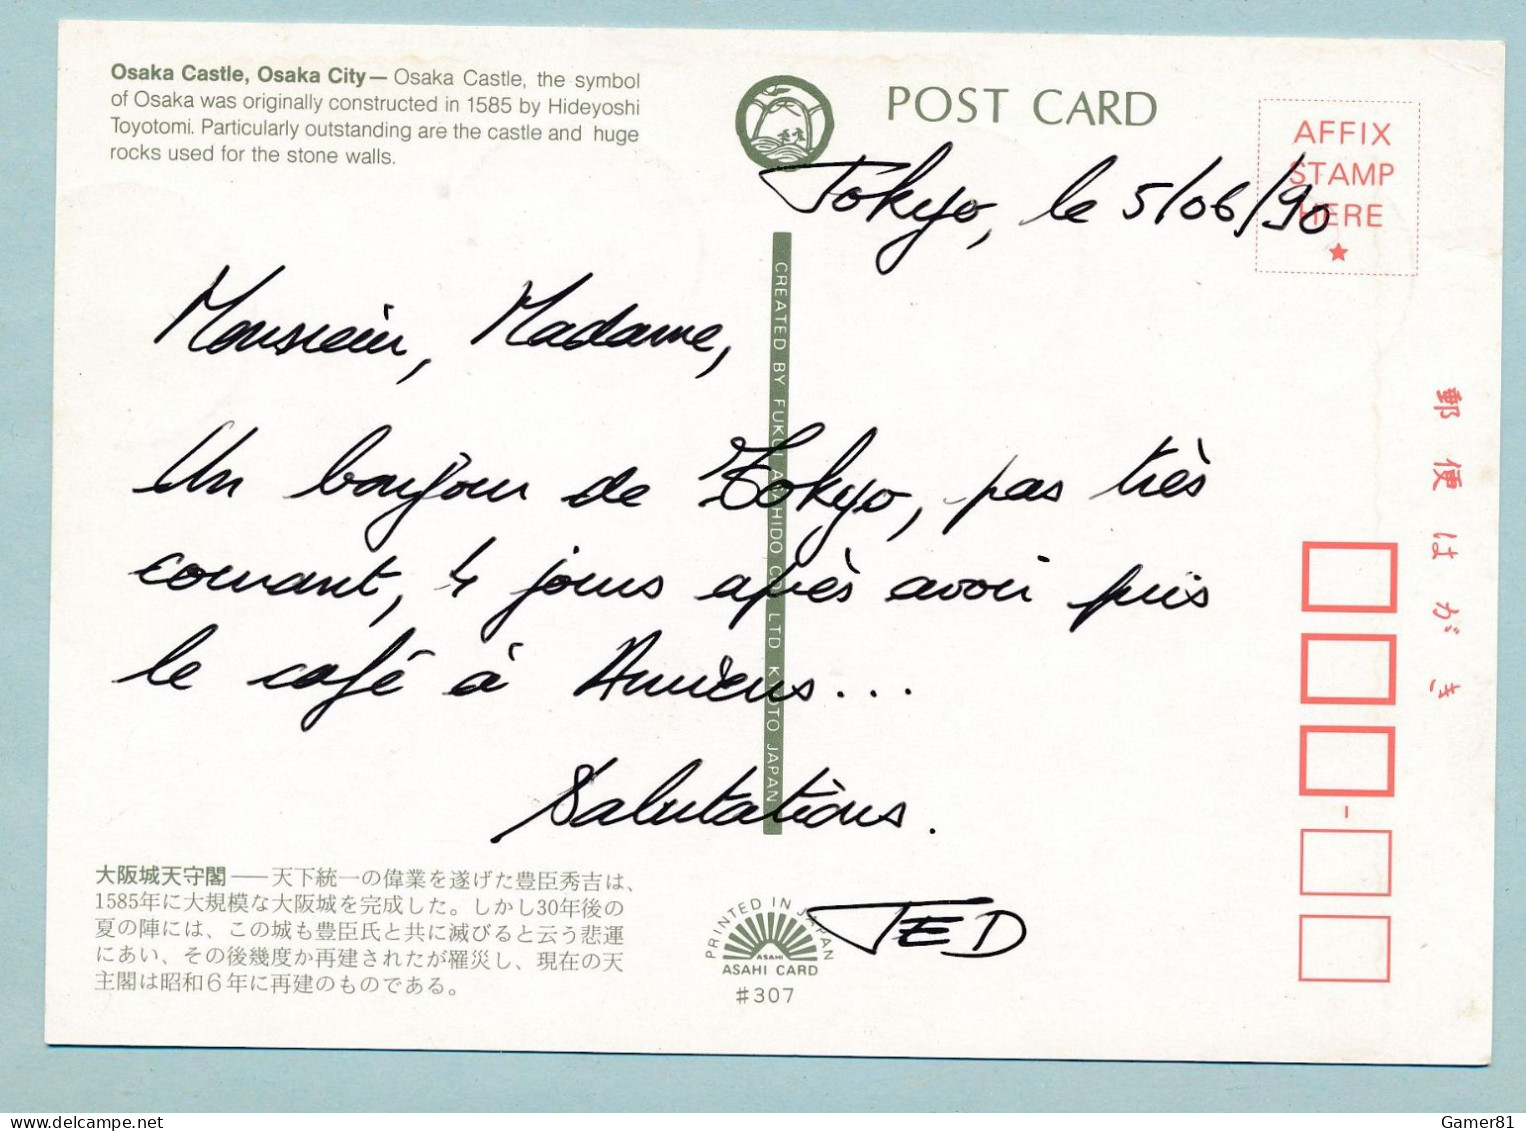 Osaka Castle, Osaka City — Osaka Castle, the symbol
of Osaka was originally constructed in 1585 by Hideyoshi
Toyotomi. Particularly outstanding are the castle and huge
rocks used for the stone walls.
POST CARD
AFFIX
STAMP
HERE
★
Tokyo, le 5/06/90
Monsieur, Madame,
Un bonjour de Tokyo, pas très
courant, 4 jours après avoir pris
le café à Amiens...
Salutations.
TED
CREATED BY FUKUI ASAHIDO CO., LTD KYOTO JAPAN
郵便はがき
大阪城天守閣——天下統一の偉業を遂げた豊臣秀吉は、
1585年に大規模な大阪城を完成した。しかし30年後の
夏の陣には、この城も豊臣氏と共に滅びると云う悲運
にあい、その後幾度か再建されたが罹災し、現在の天
主閣は昭和6年に再建のものである。
PRINTED IN JAPAN
ASAHI
ASAHI CARD
#307
Gamer81